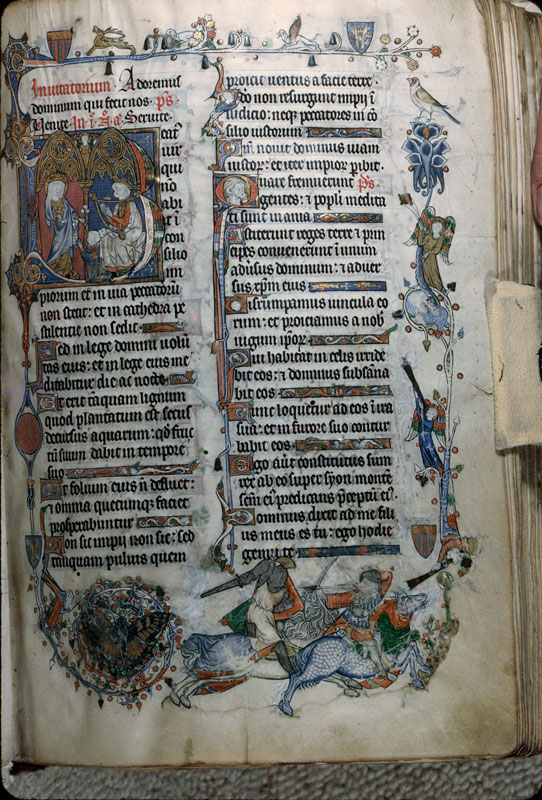 Inuitatorium. Adoremus
dominum qui fecit nos. ps.
Uenite. In i. Seruite.
eat
uir
qui
no
abi
it i
con
silio
im
piorum et in uia peccatorū
non stetit: et in cathedra pe
stilentie non sedit
Sed in lege domini uolū
tas eius: et in lege eius me
ditabitur die ac nocte
Et erit tāquam lignum
quod plantatum est secus
decursus aquarum: qd fruc
tū suum dabit in tempore
suo
Et folium eius n̄ defluet:
omnia quecumque faciet
prosperabuntur
Non sic impij non sic: sed
tamquam puluis quem
proicit uentus a facie terre.
Ideo non resurgunt impij ī
iudicio: neqꝫ peccatores in cō
silio iustorum
Qm̄ nouit dominus uiam
iustoꝝ: et iter impioꝝ pibit.
Quare fremuerunt ps.
gentes: et popli medita
ti sunt in ania
Astiterunt reges terre et prin
cipes conuenerunt ī unum
aduersus dominum: et aduer
sus xp̄m eius
Dirumpamus uincula eo
rum: et proiciamus a nob
iugum ipoꝝ
Qui habitat in celis irride
bit eos: et dominus subsāna
bit eos
Tunc loquetur ad eos ī ira
sua: et in furore suo contur
babit eos
Ego aūt constitutus sum
rex ab eo super syon monte
scm̄ ei predicans pceptū ei.
Dominus dixit ad me fili
us meus es tu: ego hodie
genui te